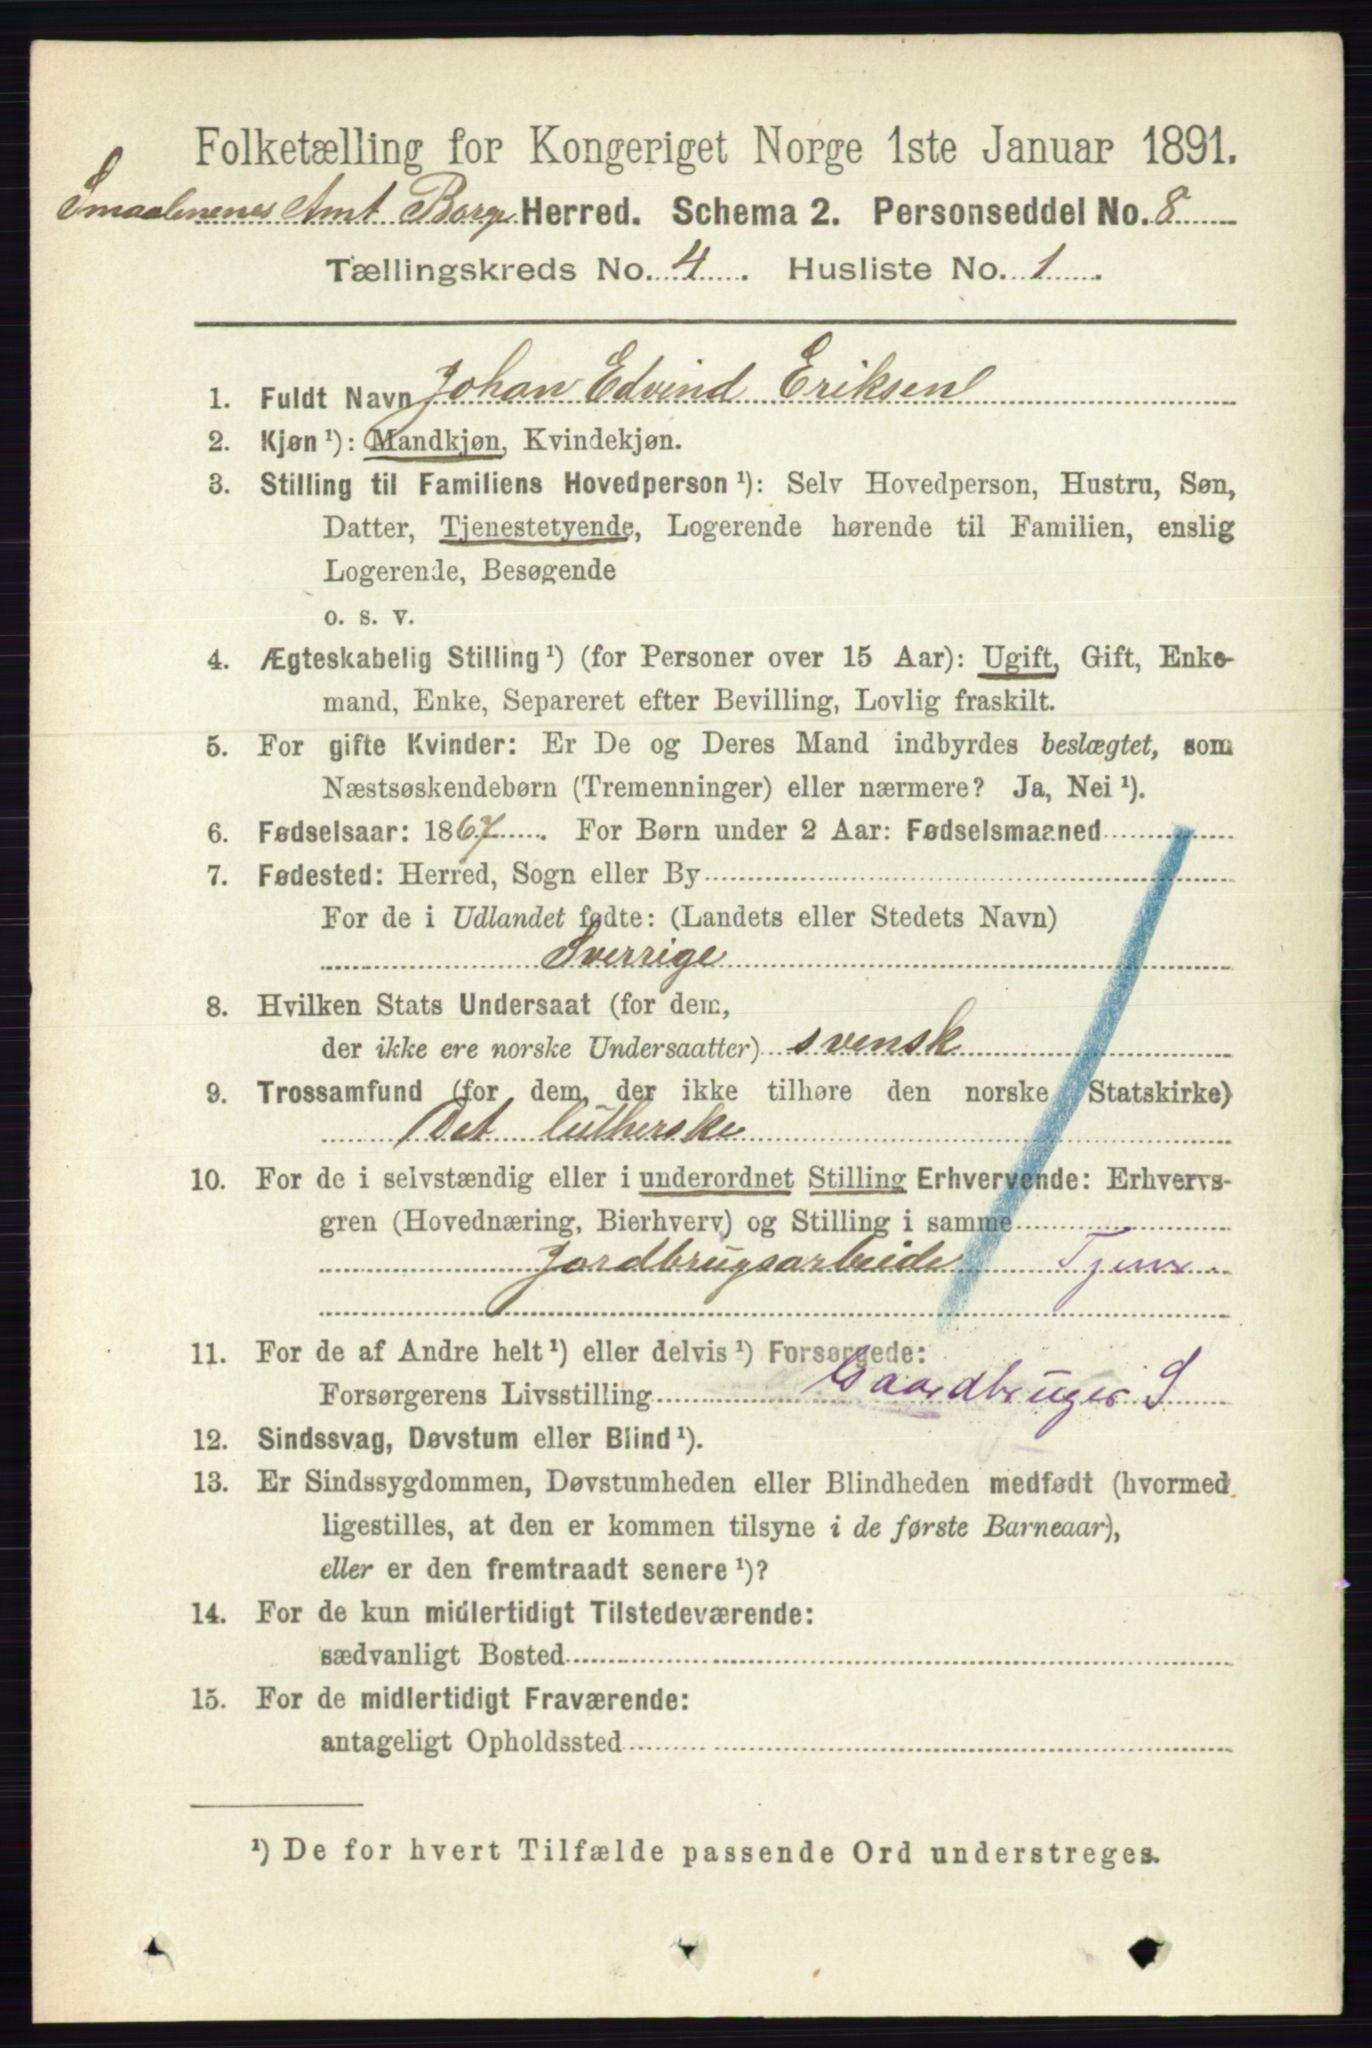 Folketælling for Kongeriget Norge 1ste Januar 1891.
Smaalenenes Amt Borge Herred. Schema 2. Personseddel No. 8
Tællingskreds No. 4. Husliste No. 1.
1. Fuldt Navn Johan Edvind Eriksen
2. Kjøn ¹): Mandkjøn, Kvindekjøn.
3. Stilling til Familiens Hovedperson ¹): Selv Hovedperson, Hustru, Søn,
Datter, Tjenestetyende, Logerende hørende til Familien, enslig
Logerende, Besøgende
o. s. v.
4. Ægteskabelig Stilling ¹) (for Personer over 15 Aar): Ugift, Gift, Enke-
mand, Enke, Separeret efter Bevilling, Lovlig fraskilt.
5. For gifte Kvinder: Er De og Deres Mand indbyrdes beslægtet, som
Næstsøskendebørn (Tremenninger) eller nærmere? Ja, Nei ¹).
6. Fødselsaar: 1867. For Børn under 2 Aar: Fødselsmaaned
7. Fødested: Herred, Sogn eller By
For de i Udlandet fødte: (Landets eller Stedets Navn)
Sverrige
8. Hvilken Stats Undersaat (for dem,
der ikke ere norske Undersaatter) svensk
9. Trossamfund (for dem, der ikke tilhøre den norske Statskirke)
Det lutherske
10. For de i selvstændig eller i underordnet Stilling Erhvervende: Erhvervs-
gren (Hovednæring, Bierhverv) og Stilling i samme
Jordbrugsarbeide
11. For de af Andre helt ¹) eller delvis ¹) Forsørgede:
Forsørgerens Livsstilling Gaardbruger S
12. Sindssvag, Døvstum eller Blind ¹).
13. Er Sindssygdommen, Døvstumheden eller Blindheden medfødt (hvormed
ligestilles, at den er kommen tilsyne i de første Barneaar),
eller er den fremtraadt senere ¹)?
14. For de kun midlertidigt Tilstedeværende:
sædvanligt Bosted
15. For de midlertidigt Fraværende:
antageligt Opholdssted
¹) De for hvert Tilfælde passende Ord understreges.